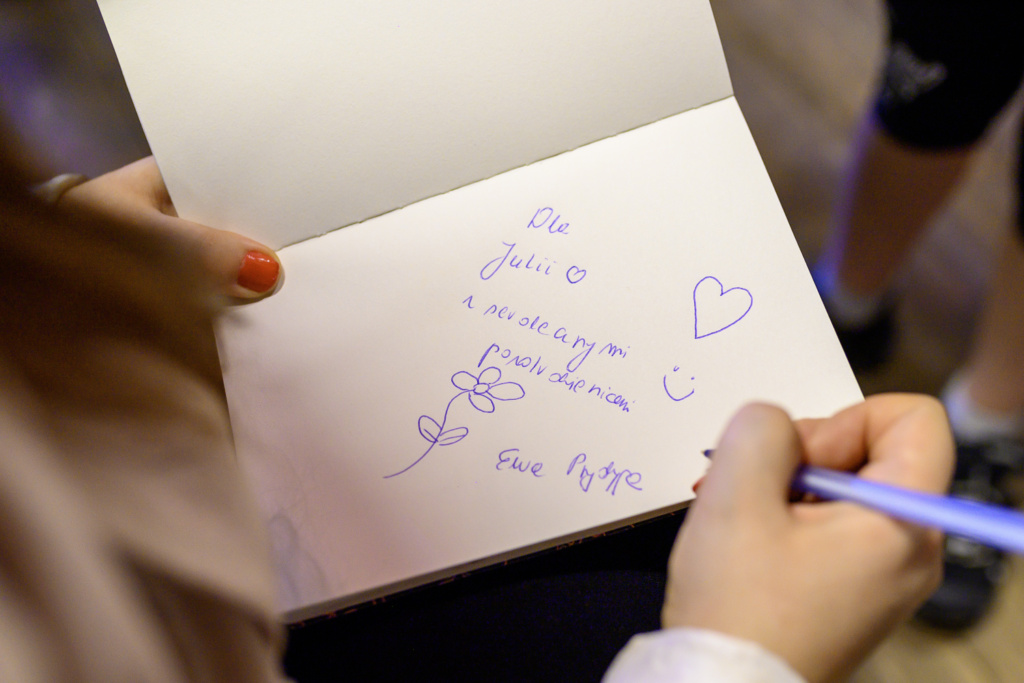 Dla
Julii
z serdecznymi
pozdrowieniami
Ewa